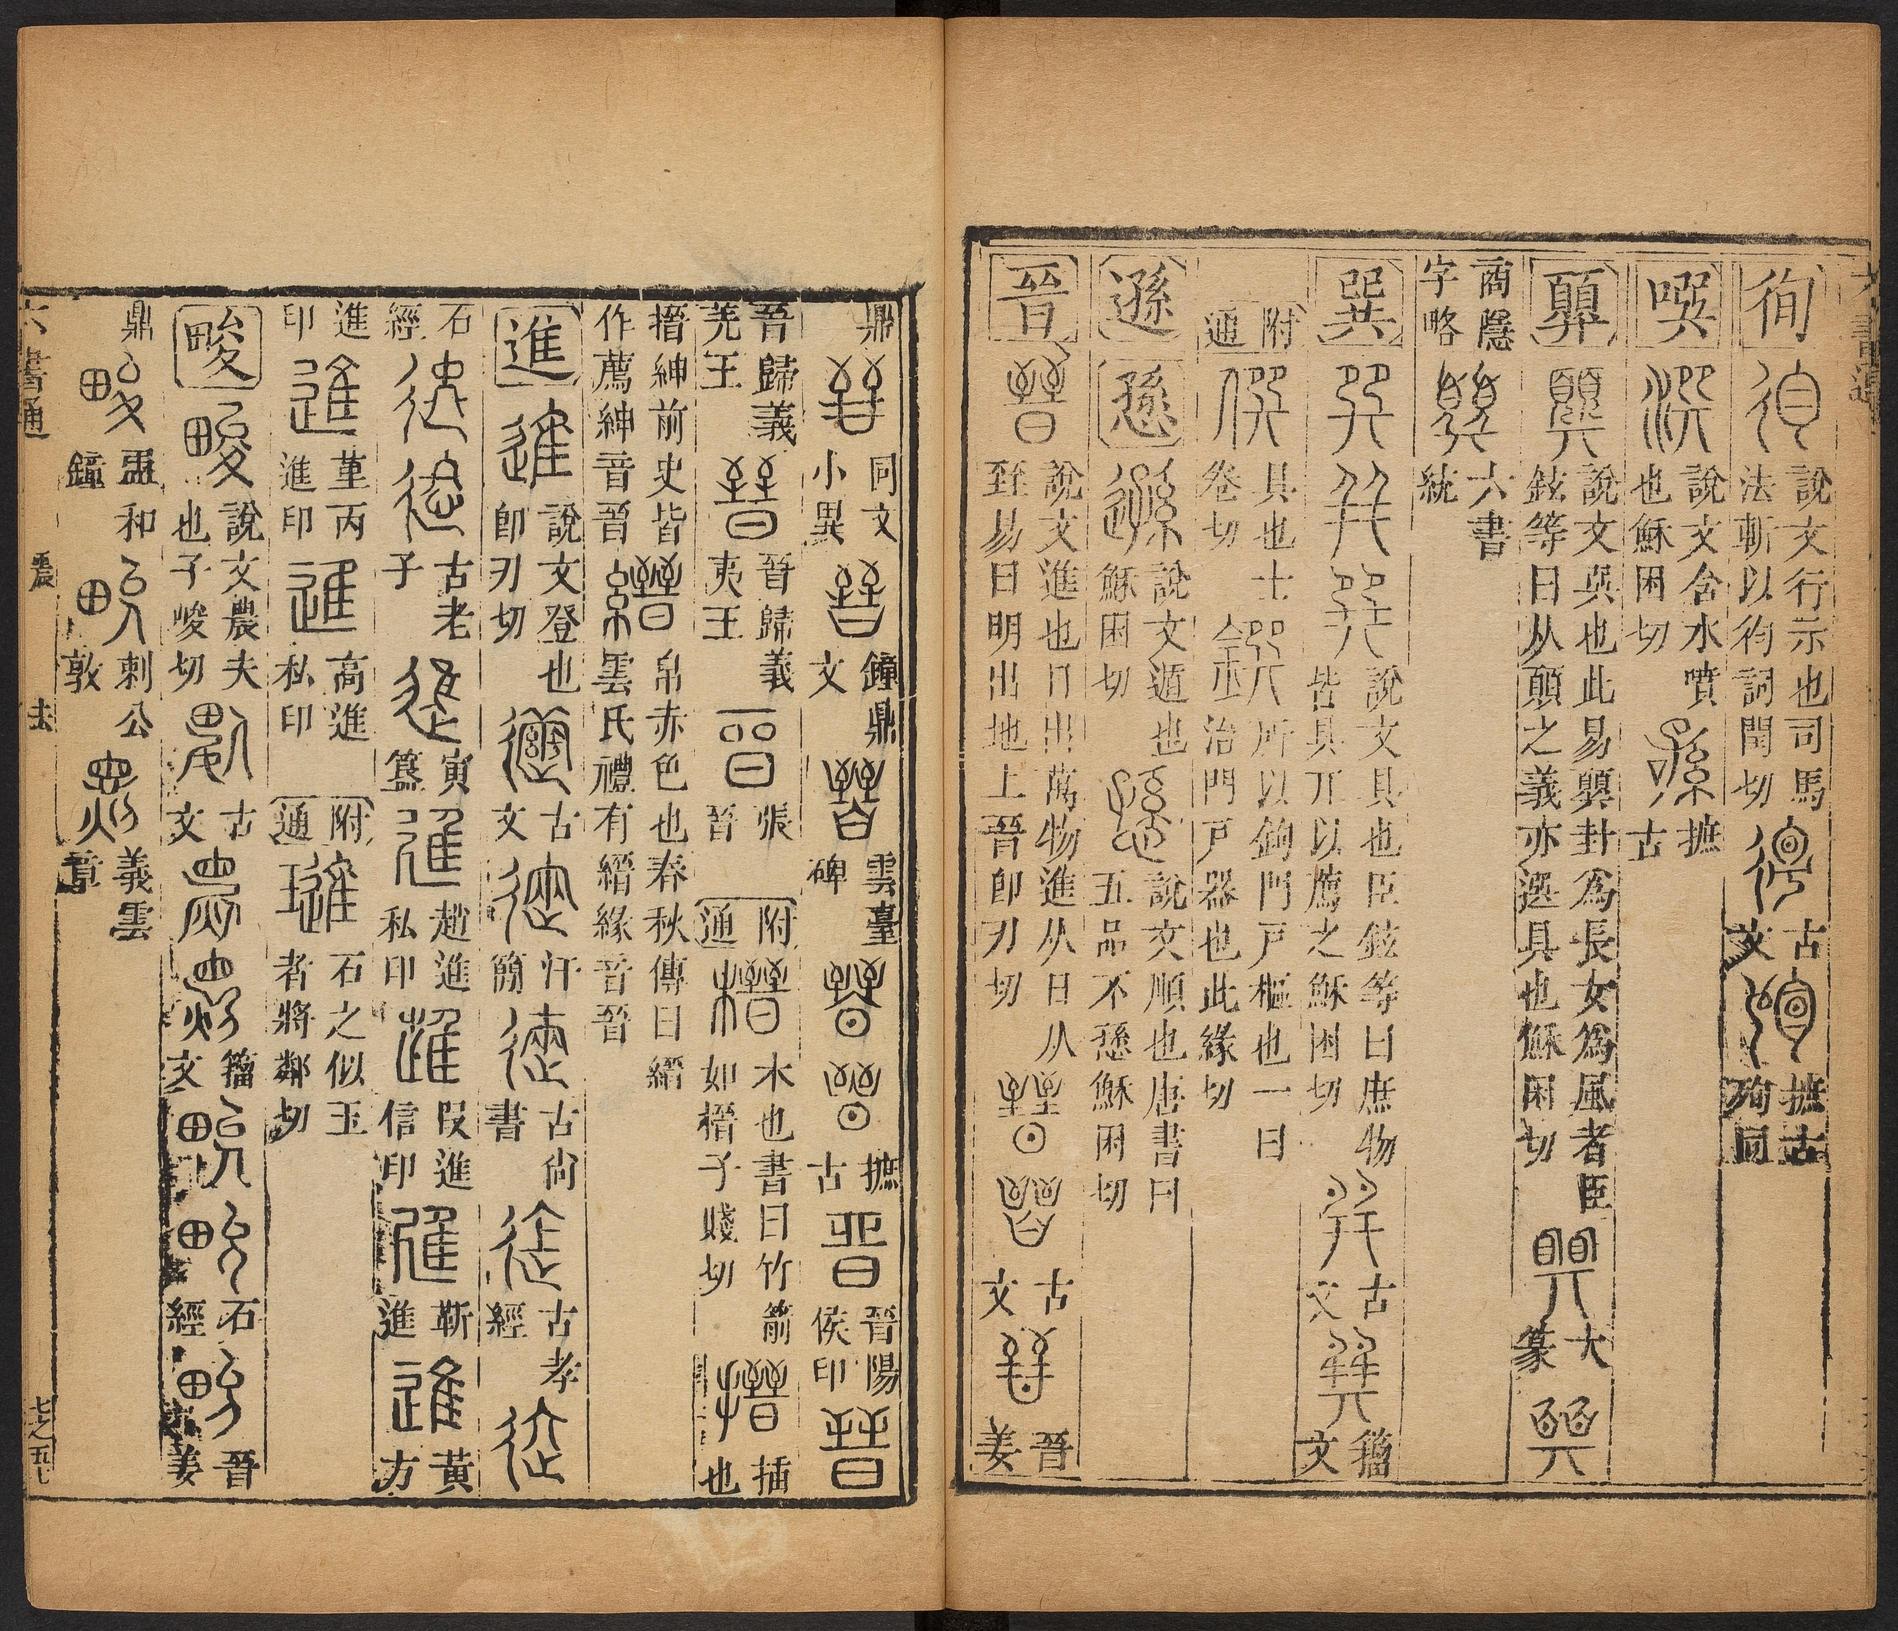 徇
說文行示也司馬
法斬以徇詞閏切
古
文
摭古
殉同
噀
說文含水噴
也穌困切
摭
古
顨
說文巽也此易顨卦爲長女爲風者臣
鉉等曰从顛之義亦選具也穌困切
大
篆
商隱
字略
六書
統
巽
說文具也臣鉉等曰庶物
皆具丌以薦之穌困切
古
文
籀
文
附
通
具也士
卷切
所以鉤門戶樞也一曰
治門戶器也此緣切
遜
愻
說文遁也
穌困切
說文順也唐書曰
五品不愻穌困切
晉
說文進也日出萬物進从日从
臸易曰明出地上晉卽刃切
古
文
晉
姜
鼎
同文
小異
鐘鼎
文
雲臺
碑
摭
古
晉陽
侯印
晉歸義
羌王
晉歸義
夷王
張
晉
附
通
木也書曰竹箭
如榗子賤切
插
也
搢紳前史皆
作薦紳音晉
帛赤色也春秋傳曰縉
雲氏禮有縉緣音晉
進
說文登也
卽刃切
古
文
汗
簡
古尚
書
古孝
經
石
經
古老
子
寅
簋
趙進
私印
段進
信印
靳
進
黃
方
進
印
董丙
進印
高進
私印
附
通
石之似玉
者將鄰切
畯
說文農夫
也子峻切
古
文
籀
文
石
經
晉
姜
鼎
盄和
鐘
刺公
敦
義雲
章
六書通
震
去
七之五七